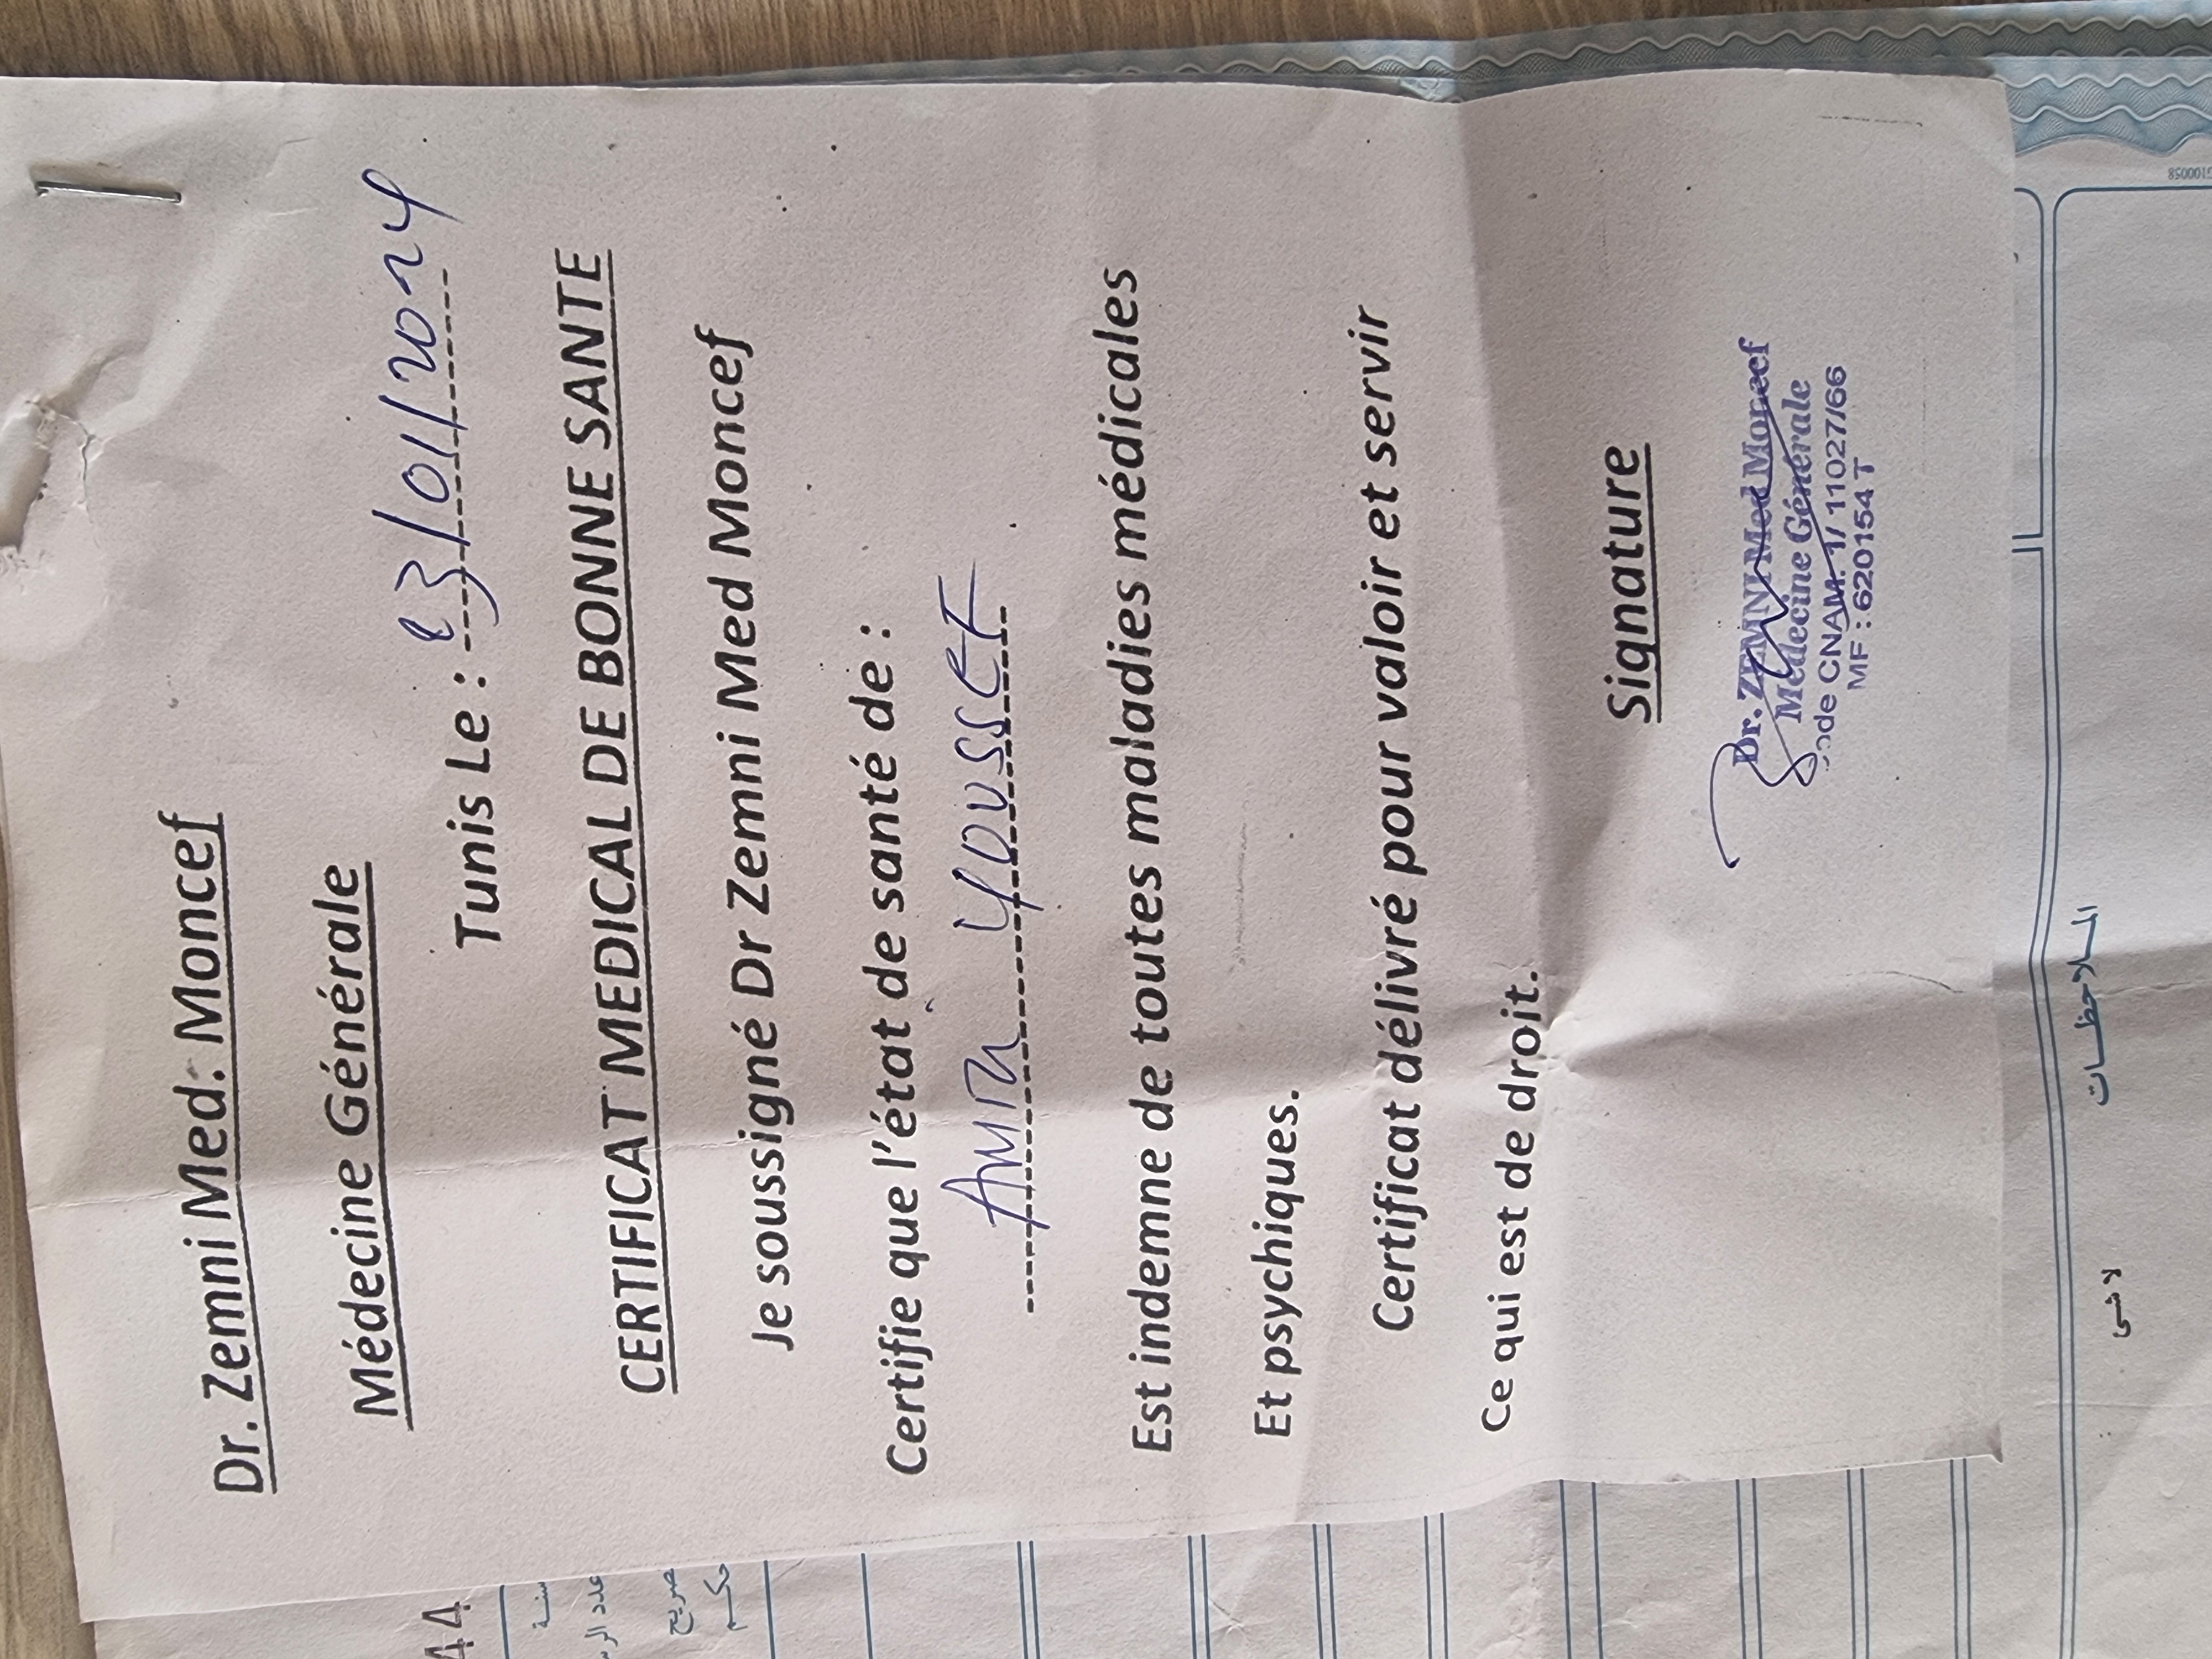 Dr. Zemni Med. Moncef
Médecine Générale
Tunis Le : 23/01/2024
CERTIFICAT MEDICAL DE BONNE SANTE
Je soussigné Dr Zemni Med Moncef
Certifie que l'état de santé de :
Amra Youssef
Est indemne de toutes maladies médicales
Et psychiques.
Certificat délivré pour valoir et servir
Ce qui est de droit.
Signature
Dr. ZEMNI Med Moncef
Médecine Générale
Code CNAM. 1/ 11027/66
MF : 620154 T
44
سنة
عدد الر
صريح
حكم
الملاحظات
لا شئ
100058